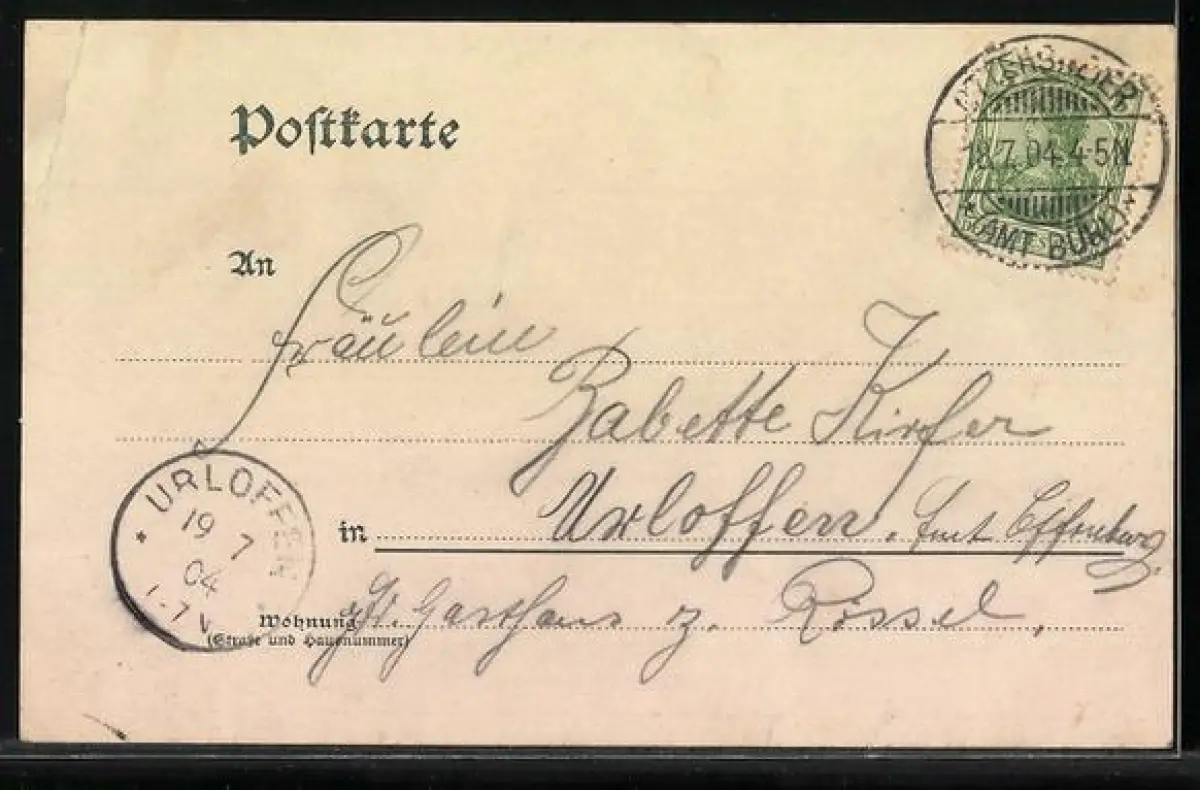 Postkarte
18.7.04.4-5N.
* (AMT BÜHL) *
An
Fräulein
Babette
URLOFFEN
19 7
04
in Urloffen. Amt Offenburg.
Wohnung
Gasthaus z. Rössel.
(Straße und Hausnummer)